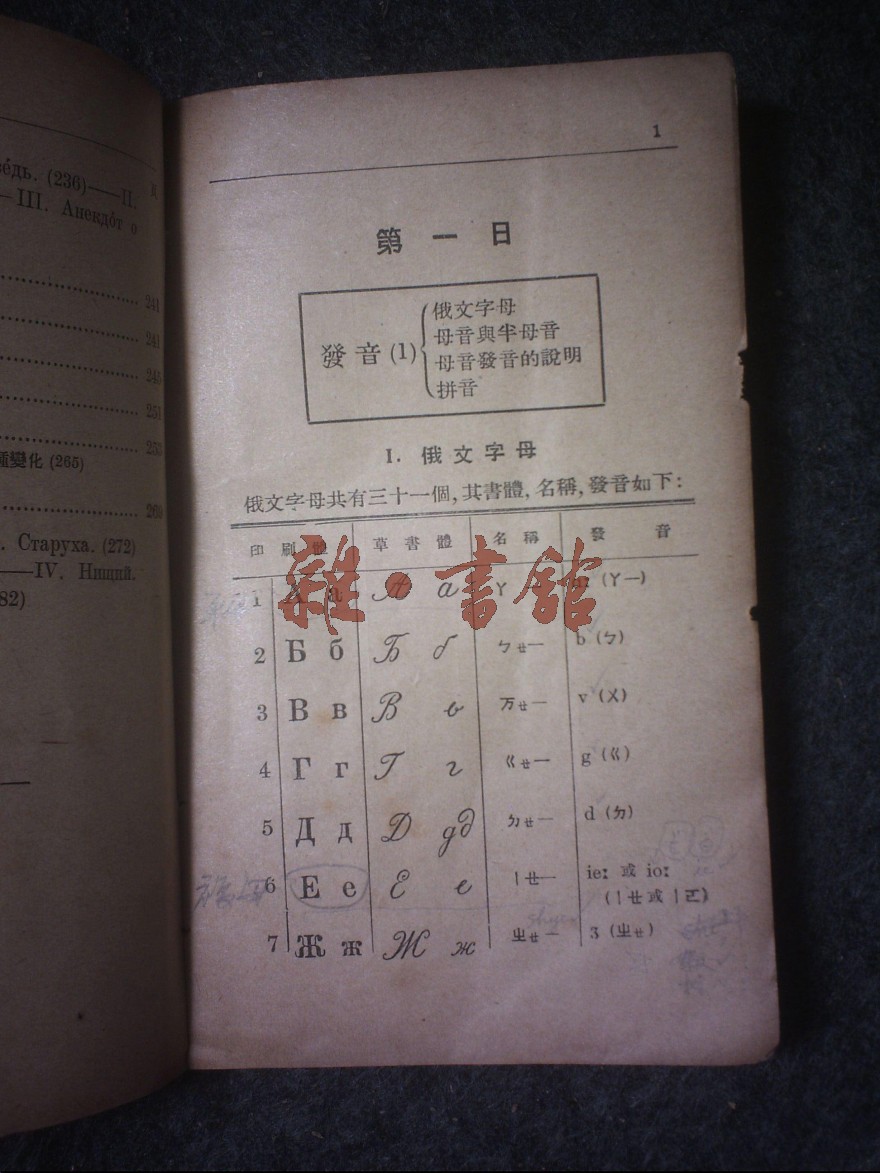 (236)——II.
III. Анекдо́т о
241
241
245
251
253
變化 (265)
269
Старуха. (272)
——IV. Нищий.
82)
1
第一日
發音 (1)
俄文字母
母音與半母音
母音發音的說明
拼音
I. 俄文字母
俄文字母共有三十一個, 其書體, 名稱, 發音如下:
印刷體 草書體 名稱 發音
1 А а А а ㄚ (ㄚ一)
2 Б б Б б ㄅㄝ一 b (ㄅ)
3 В в В в ㄪㄝ一 v (ㄨ)
4 Г г Г г ㄍㄝ一 g (ㄍ)
5 Д д Д д ㄉㄝ一 d (ㄉ)
6 Е е Е е ㄧㄝ一 ie: 或 io:
(ㄧㄝ或ㄧㄛ)
7 Ж ж Ж ж ㄓㄝ一 3 (ㄓㄝ)
雜·書館